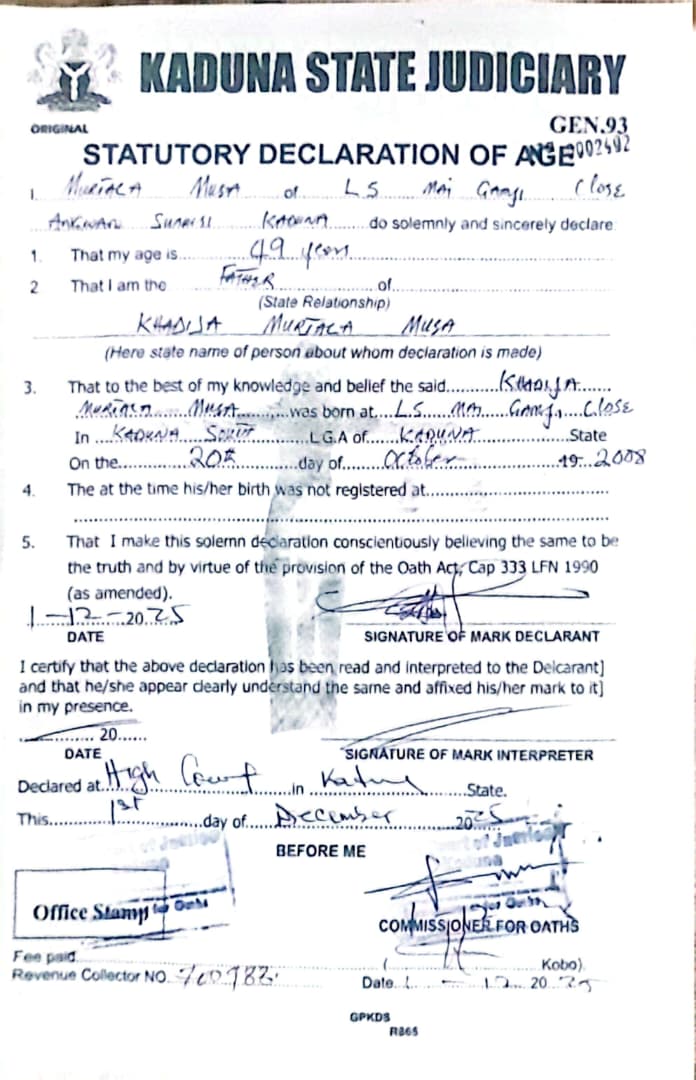 KADUNA STATE JUDICIARY
ORIGINAL
GEN.93
STATUTORY DECLARATION OF AGE 0002492
I, MURTALA MUSA of LS MAI GAMJI Close
ANGWAN SUNUSI KADUNA do solemnly and sincerely declare
1. That my age is 49 years
2 That I am the FATHER of
(State Relationship)
KHADIJA MURTALA MUSA
(Here state name of person about whom declaration is made)
3. That to the best of my knowledge and belief the said KHADIJA
MURTALA MUSA was born at LS MAI GAMJI Close
In KADUNA SOUTH L.G.A of KADUNA State
On the 20th day of October 19 2008
4. The at the time his/her birth was not registered at
5. That I make this solemn declaration conscientiously believing the same to be
the truth and by virtue of the provision of the Oath Act, Cap 333 LFN 1990
(as amended).
1-12-2025
DATE
SIGNATURE OF MARK DECLARANT
I certify that the above declaration has been read and interpreted to the Delcarant]
and that he/she appear clearly understand the same and affixed his/her mark to it]
in my presence.
20
DATE
SIGNATURE OF MARK INTERPRETER
Declared at High Court in Kaduna State.
This 1st day of December 2025
BEFORE ME
Office Stamp
COMMISSIONER FOR OATHS
Fee paid ( Kobo)
Revenue Collector NO.
Date 1 - 12 2025
GPKDS
R865